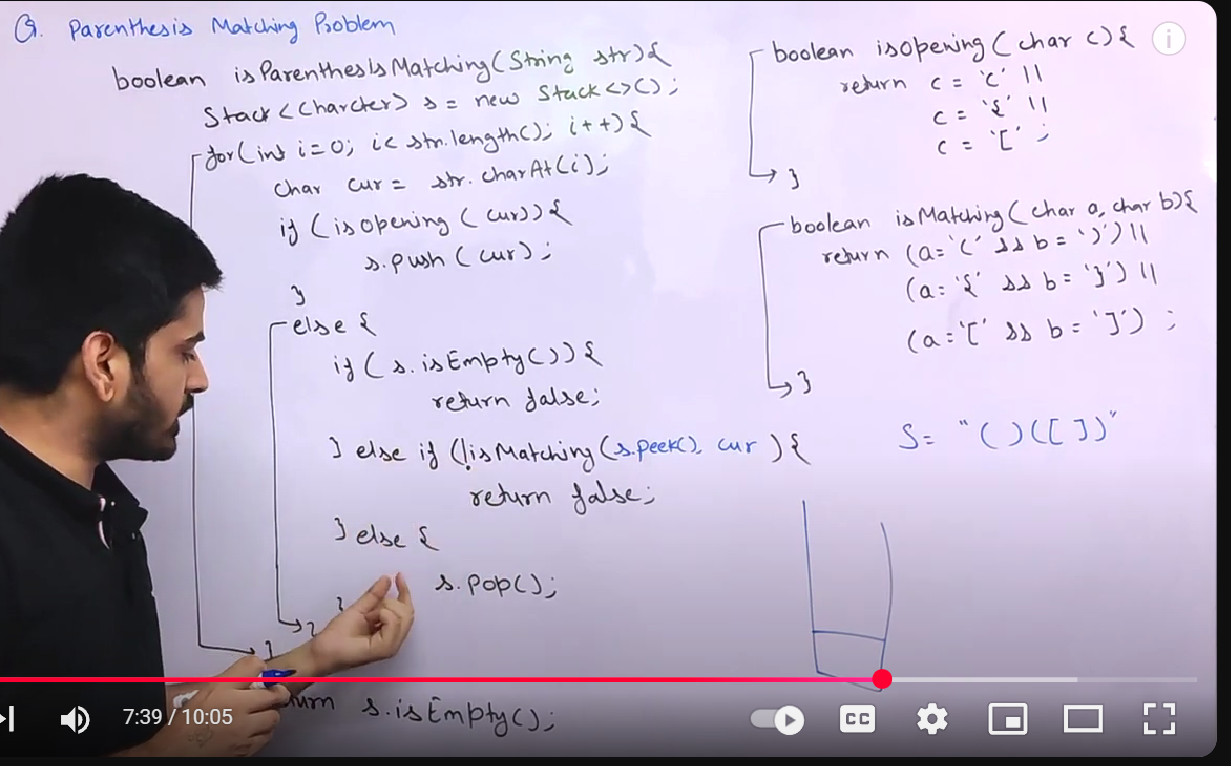 Q. Parenthesis Matching Problem
boolean isParenthesisMatching(String str){
Stack<Charcter> s = new Stack<>();
for(int i=0; i< str.length(); i++){
char cur = str.charAt(i);
if (isopening (cur)){
s.push (cur);
}
else {
if ( s.isEmpty()){
return false;
} else if (!isMatching(s.peek(), cur ){
return false;
} else {
s.pop();
}
}
}
s.isEmpty();
boolean isopening ( char c){
return c = '(' ||
c = '{' ||
c = '[' ;
}
boolean isMatching( char a, char b){
return (a='(' && b = ')') ||
(a= '{' && b = '}') ||
(a='[' && b = ']') ;
}
S= "()([])"
7:39 / 10:05
CC